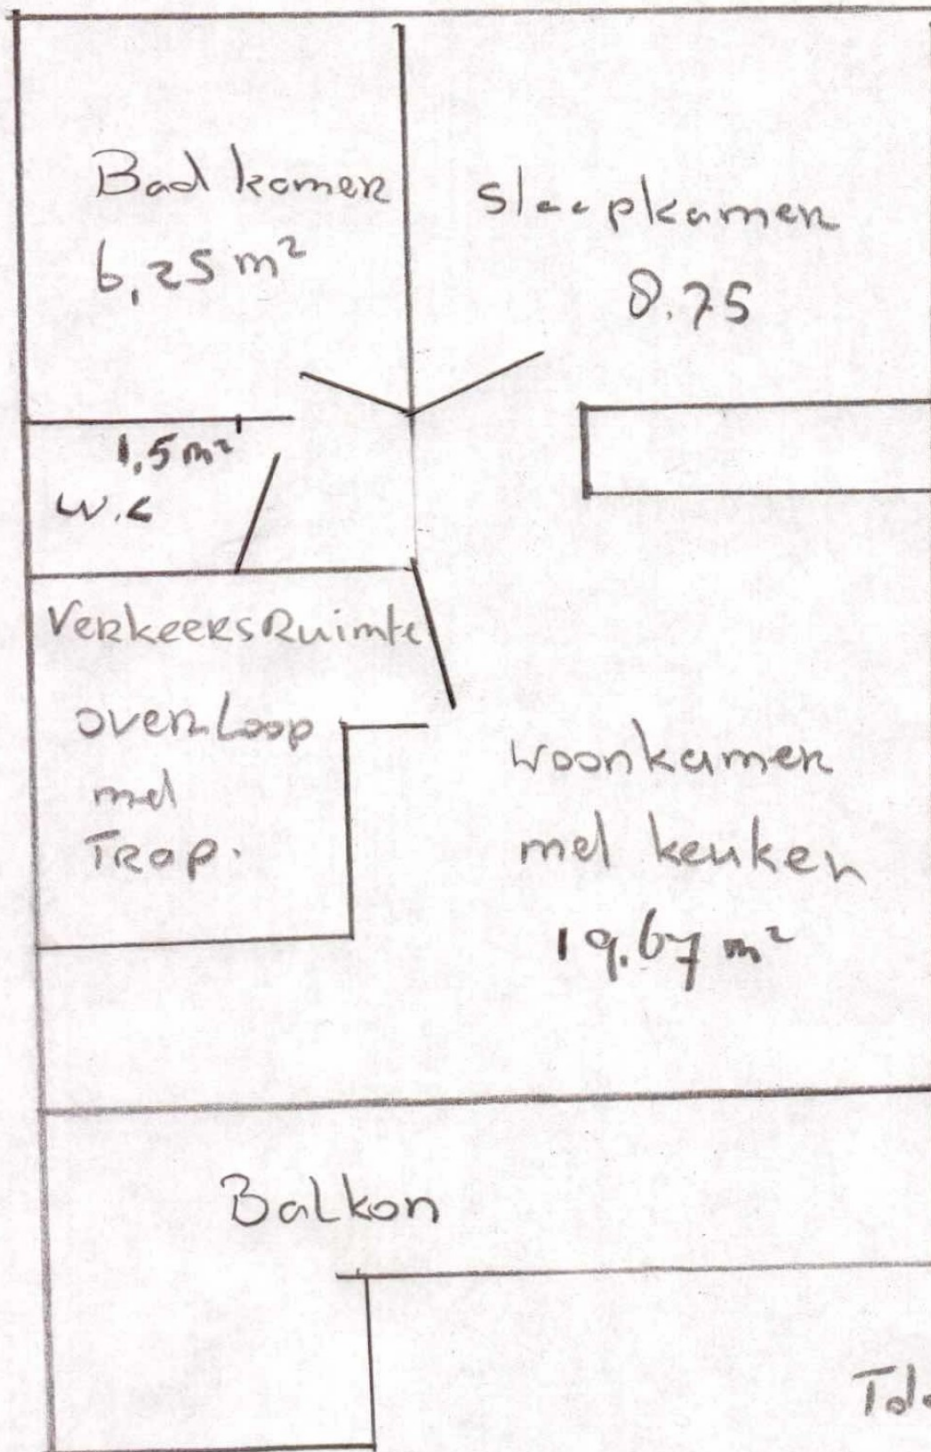 Badkamer
6,25 m²
Slaapkamer
8.75
1,5 m²
W.C
Verkeersruimte
overloop
met
Trap.
Woonkamer
met keuken
19.67 m²
Balkon